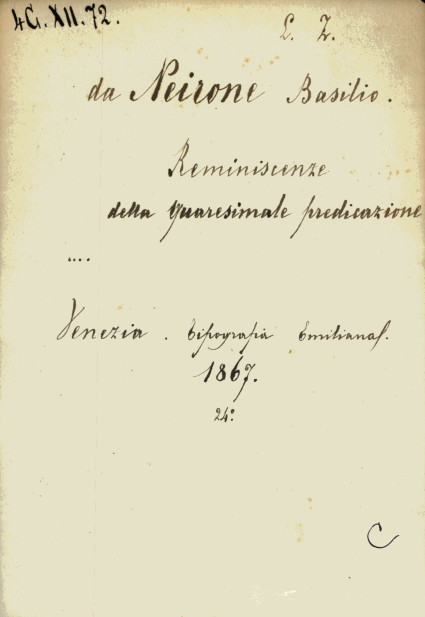 4G. XII. 72.
L. Z.
da Neirone Basilio.
Reminiscenze
della quaresimale predicazione
....
Venezia. Tipografia Emiliana.
1867.
24°
C